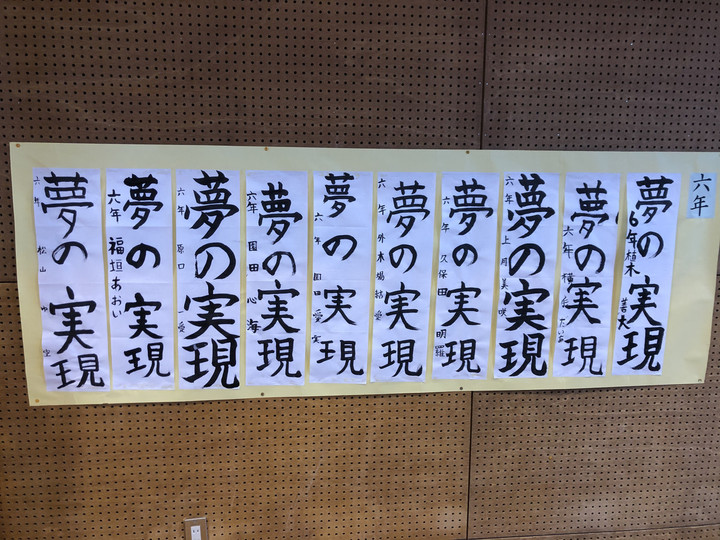 六年
夢の実現
6年植木善大
夢の実現
六年横
たいお
夢の実現
六年上月美咲
夢の実現
六年久保田明羅
夢の実現
六年外木場結愛
夢の実現
六年
田愛実
夢の実現
六年園田心海
夢の実現
六年原口一愛
夢の実現
六年福垣あおい
夢の実現
六年松山
空